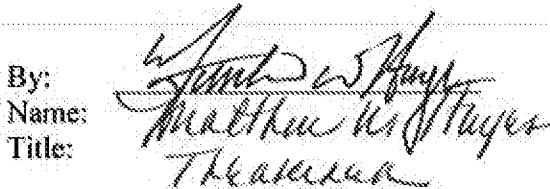 By:
Name: Matthew W Hayes
Title: Treasurer